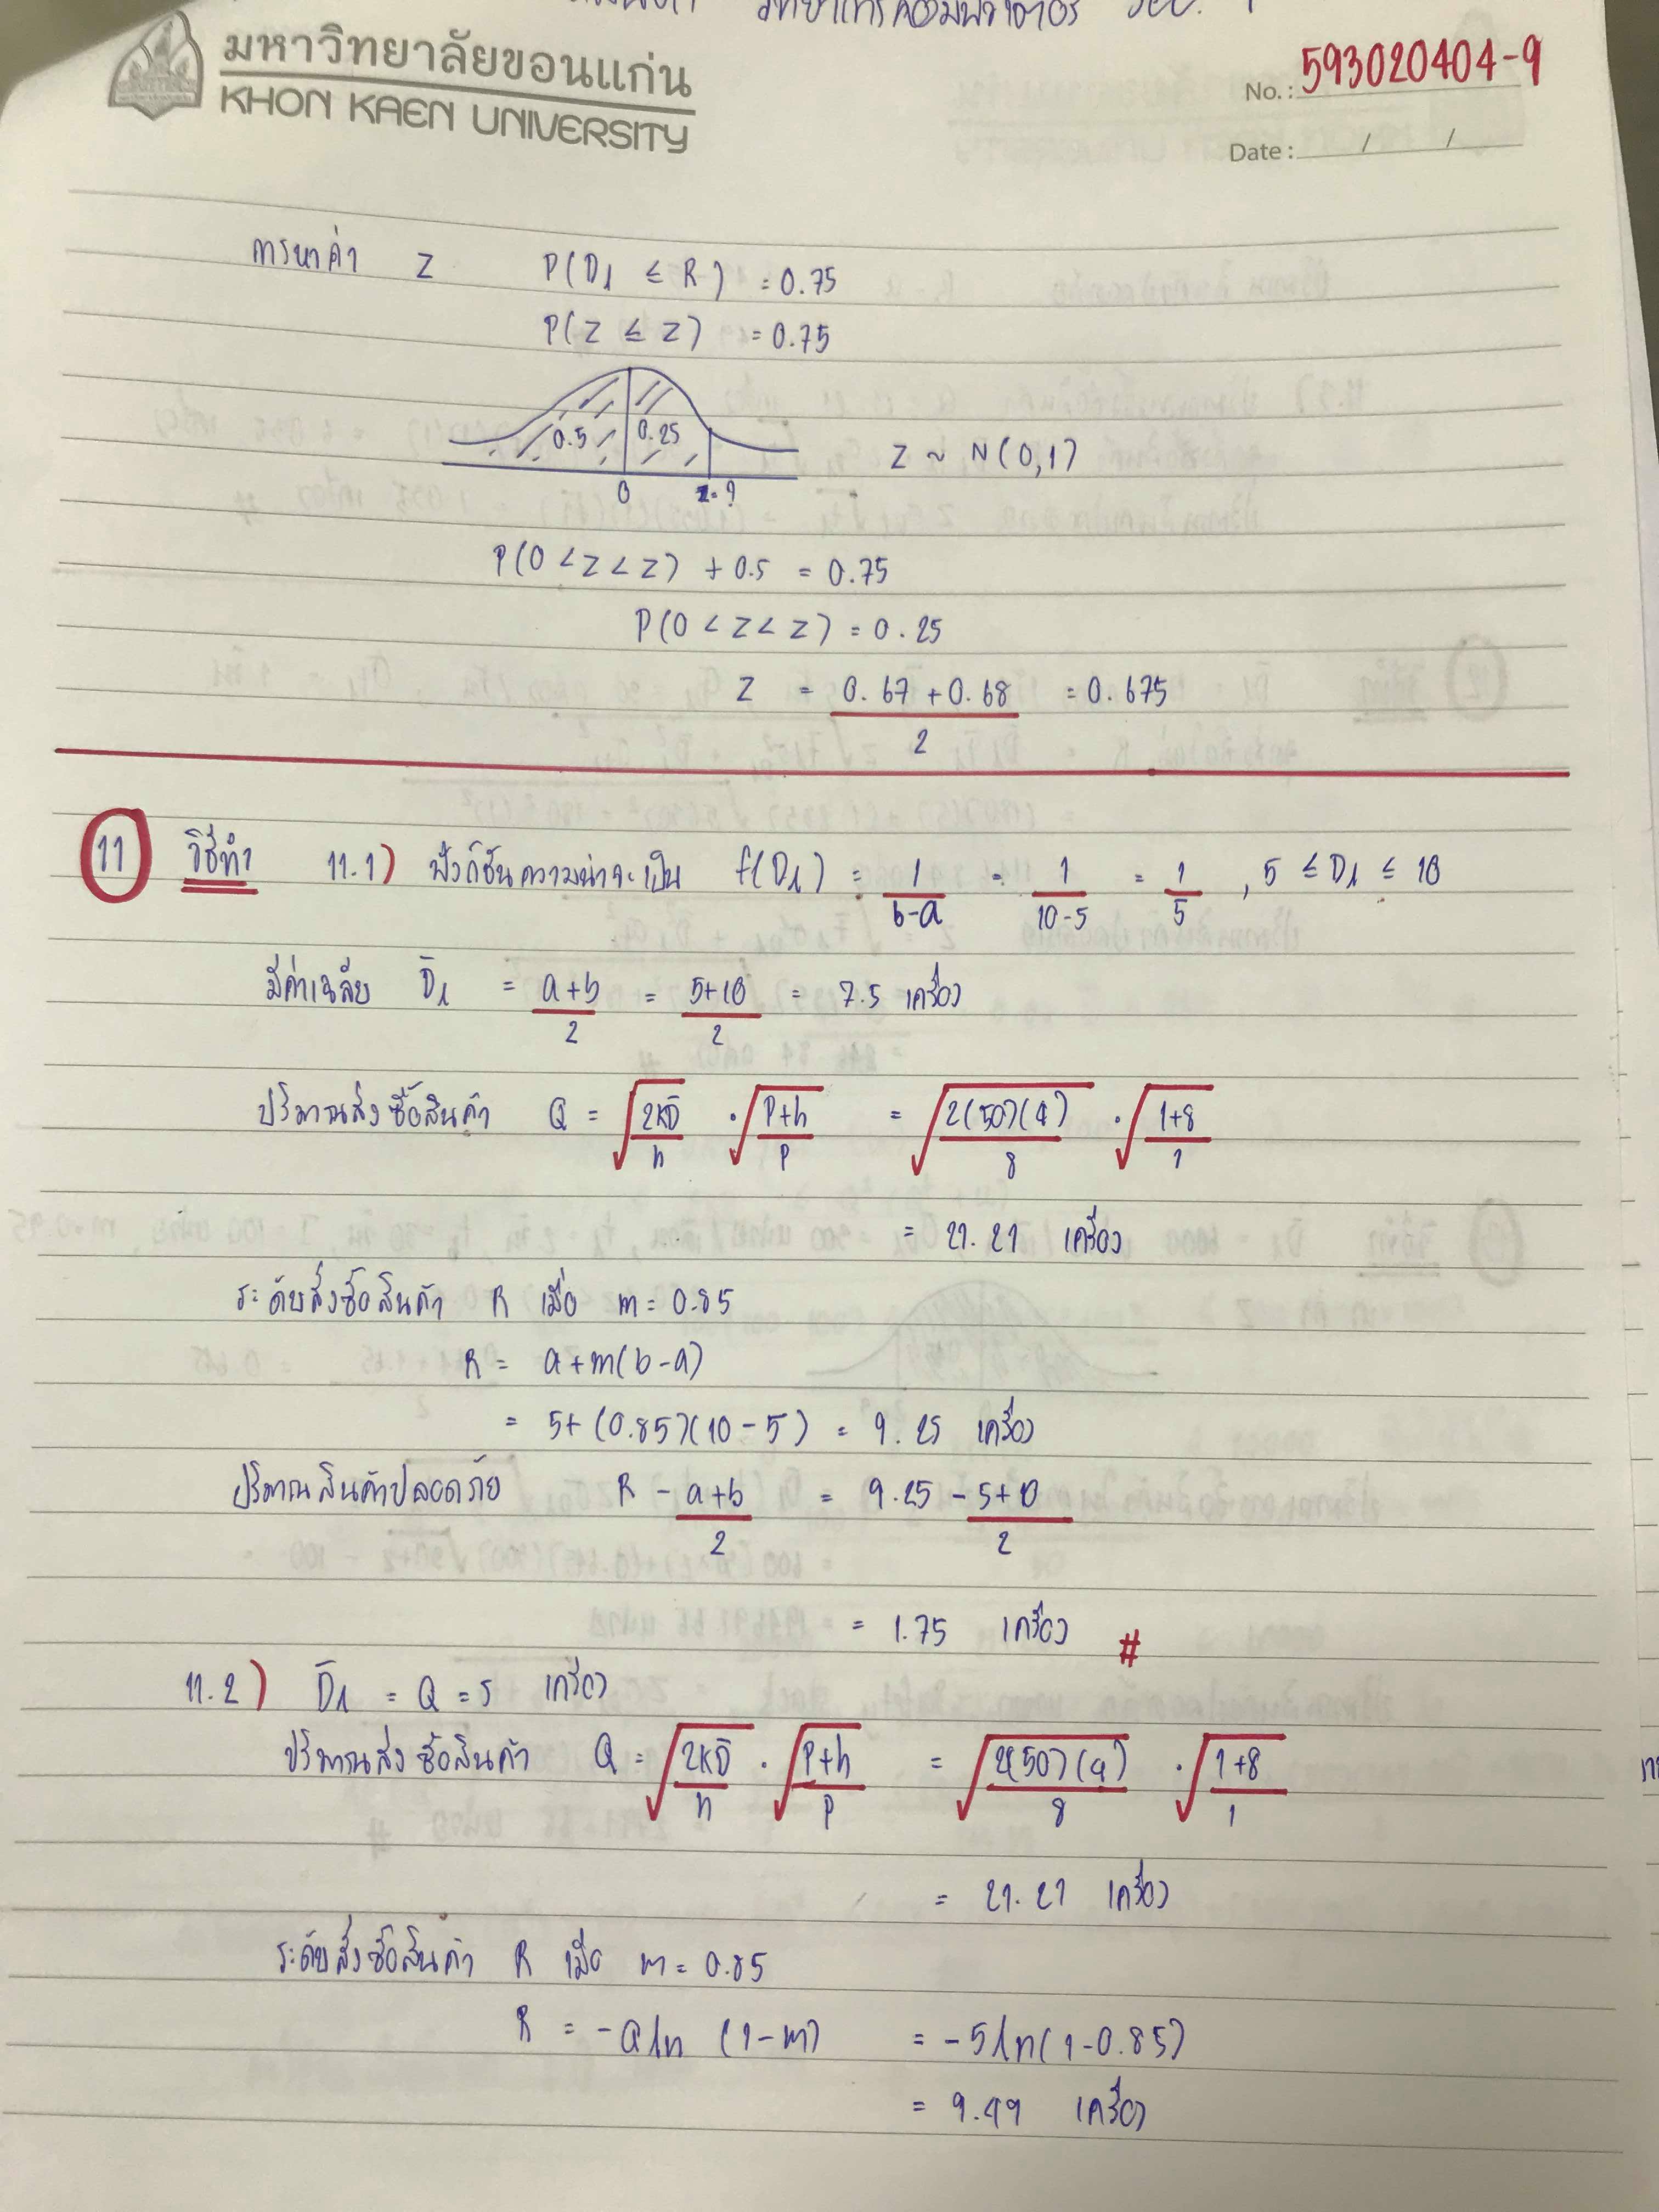 วิทยาการคอมพิวเตอร์ Sec. 1
มหาวิทยาลัยขอนแก่น
KHON KAEN UNIVERSITY
No. : 593020404-9
Date : / /
การหาค่า Z P(D₁ ≤ R) = 0.75
P(Z ≤ Z) = 0.75
0.5 0.25
Z ~ N(0,1)
0 Z=?
P(0 < Z < Z) + 0.5 = 0.75
P(0 < Z < Z) = 0.25
Z = (0.67 + 0.68)/2 = 0.675
11 วิธีทำ 11.1) ฟังก์ชันความน่าจะเป็น f(D₁) = 1/(b-a) = 1/(10-5) = 1/5 , 5 ≤ D₁ ≤ 10
มีค่าเฉลี่ย D̄₁ = (a+b)/2 = (5+10)/2 = 7.5 เครื่อง
ปริมาณสั่งซื้อสินค้า Q = √(2KD̄/h) · √((P+h)/P) = √(2(50)(4)/8) · √((1+8)/1)
= 21.21 เครื่อง
ระดับสั่งซื้อสินค้า R เมื่อ m = 0.85
R = a+m(b-a)
= 5+(0.85)(10-5) = 9.25 เครื่อง
ปริมาณสินค้าปลอดภัย R - (a+b)/2 = 9.25 - (5+10)/2
= 1.75 เครื่อง #
11.2) D̄₁ = Q = 5 เครื่อง
ปริมาณสั่งซื้อสินค้า Q = √(2KD̄/h) · √((P+h)/P) = √(2(50)(4)/8) · √((1+8)/1)
= 21.21 เครื่อง
ระดับสั่งซื้อสินค้า R เมื่อ m = 0.85
R = -Q ln (1-m) = -5 ln(1-0.85)
= 9.49 เครื่อง